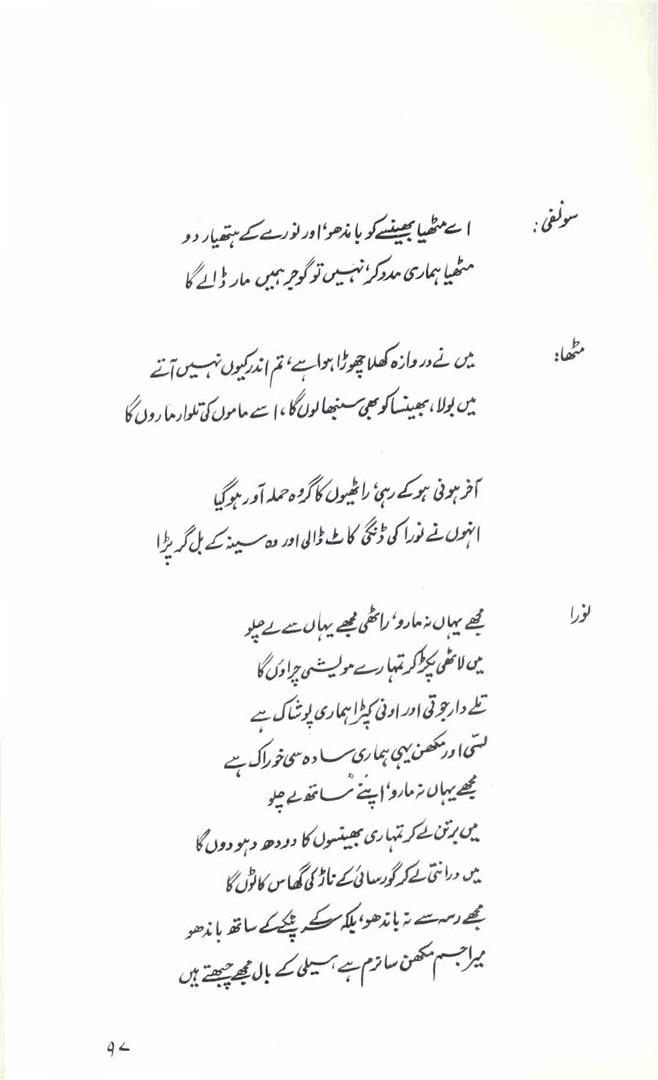 سونفی: اے مٹھیا بھینسے کو باندھو، اور نورے کے ہتھیار دو
مٹھیا ہماری مدد کر، نہیں تو گوجر ہمیں مار ڈالے گا
مٹھا: میں نے دروازہ کھلا چھوڑا ہوا ہے، تم اندر کیوں نہیں آتے
میں بولا، بھینسا کو بھی سنبھالوں گا، اسے ماموں کی تلوار ماروں گا
آخر ہونی ہو کے رہی، راٹھیوں کا گروہ حملہ آور ہو گیا
انہوں نے نورا کی ڈنگی کاٹ ڈالی اور وہ سینہ کے بل گر پڑا
نورا مجھے یہاں نہ مارو، راٹھی مجھے یہاں سے لے چلو
میں لاٹھی پکڑ کر تمہارے مویشی چراؤں گا
تلے دار جوتی اور اونی کپڑا ہماری پوشاک ہے
لسّی اور مکھن یہی ہماری سادہ سی خوراک ہے
مجھے یہاں نہ مارو، اپنے ساتھ لے چلو
میں برتن لے کر تمہاری بھینسوں کا دودھ دہو دوں گا
میں درانتی لے کر گورسائی کے ناڑ کی گھاس کاٹوں گا
مجھے رسہ سے نہ باندھو، بلکہ کمر پٹکے کے ساتھ باندھو
میرا جسم مکھن سا نرم ہے، سیلی کے بال مجھے چبھتے ہیں
۹۷